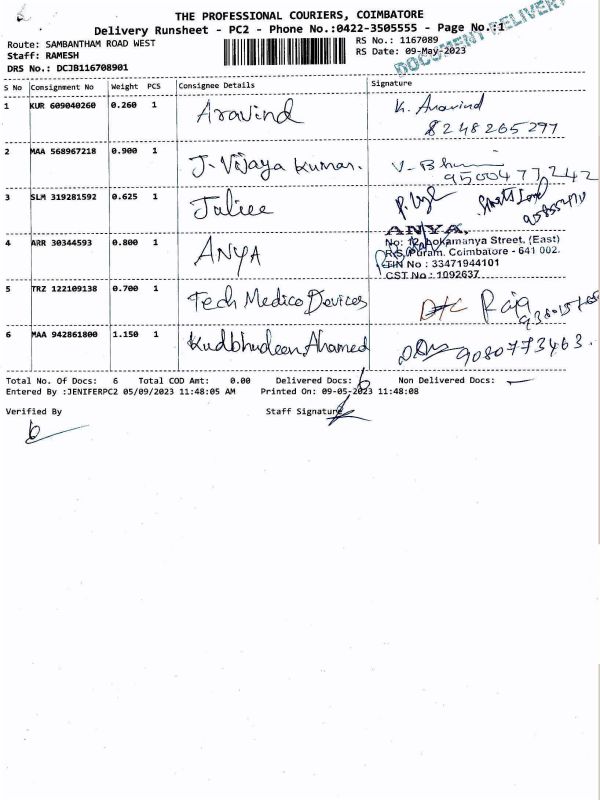 THE PROFESSIONAL COURIERS, COIMBATORE
Delivery Runsheet - PC2 - Phone No.:0422-3505555 - Page No.:1
DOCUMENT DELIVERY
Route: SAMBANTHAM ROAD WEST
RS No.: 1167089
Staff: RAMESH
RS Date: 09-May-2023
DRS No.: DCJB116708901
S No Consignment No Weight PCS Consignee Details Signature
1 KUR 609040260 0.260 1 Aravind K. Aravind
8248265297
2 MAA 568967218 0.900 1 J. Vijaya Kumar. V-
9500477242
3 SLM 319281592 0.625 1
4 ARR 30344593 0.800 1 ANYA ANYA,
No: 12, Lokamanya Street, (East)
R.S. Puram, Coimbatore - 641 002.
TIN No : 33471944101
CST No : 1092637
5 TRZ 122109138 0.700 1 Tech Medico Devices Raja
6 MAA 942861800 1.150 1 Kudbhudeen Ahamed 9080773463.
Total No. Of Docs: 6 Total COD Amt: 0.00 Delivered Docs: 6 Non Delivered Docs: —
Entered By :JENIFERPC2 05/09/2023 11:48:05 AM Printed On: 09-05-2023 11:48:08
Verified By Staff Signature